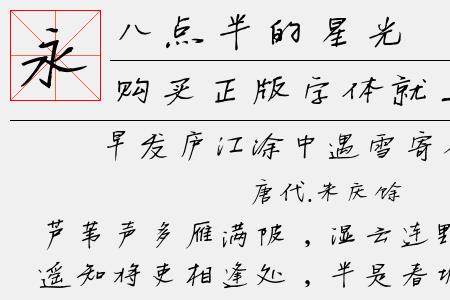 永
八点半的星光
购买正版字体就上
早发庐江涂中遇雪寄
唐代.朱庆馀
芦苇声多雁满陂，湿云连野
遥知将吏相逢处，半是春城